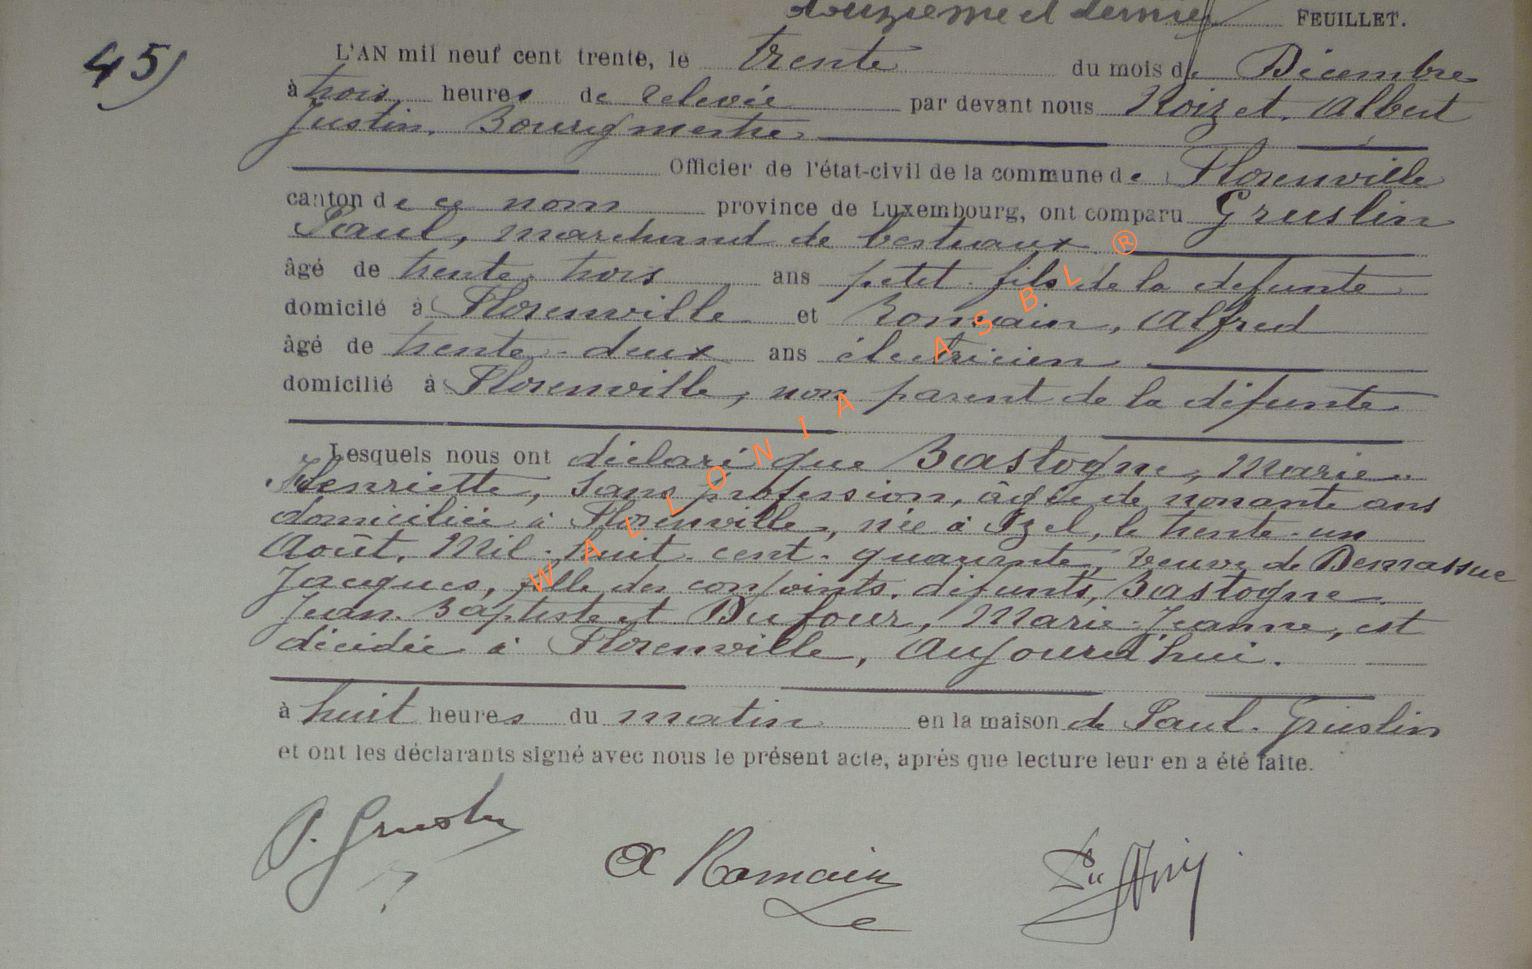 douzième et dernier FEUILLET.
45) L'AN mil neuf cent trente, le trente du mois de Décembre
à trois heures de relevée par devant nous Noizet, Albert
Justin, Bourgmestre
Officier de l'état-civil de la commune de Florenville
canton de ce nom province de Luxembourg, ont comparu Gruslin
Paul, marchand de bestiaux ®
âgé de trente-trois ans petit-fils de la défunte
domicilé à Florenville et Romain, Alfred
âgé de trente-deux ans électricien
domicilié à Florenville, non parent de la défunte
Lesquels nous ont déclaré que Bastogne, Marie-
Henriette, sans profession, âgée de nonante ans
domiciliée à Florenville, née à Izel, le trente-un
Août, Mil-huit-cent-quarante, veuve de Demassue
Jacques, fille des conjoints, défunts, Bastogne
Jean-Baptiste et Dufour, Marie-Jeanne, est
décédée à Florenville, Aujourd'hui.
à huit heures du matin en la maison de Paul Gruslin
et ont les déclarants signé avec nous le présent acte, aprés que lecture leur en a été faite.
P. Gruslin
A Romain
WALLONIA ASBL